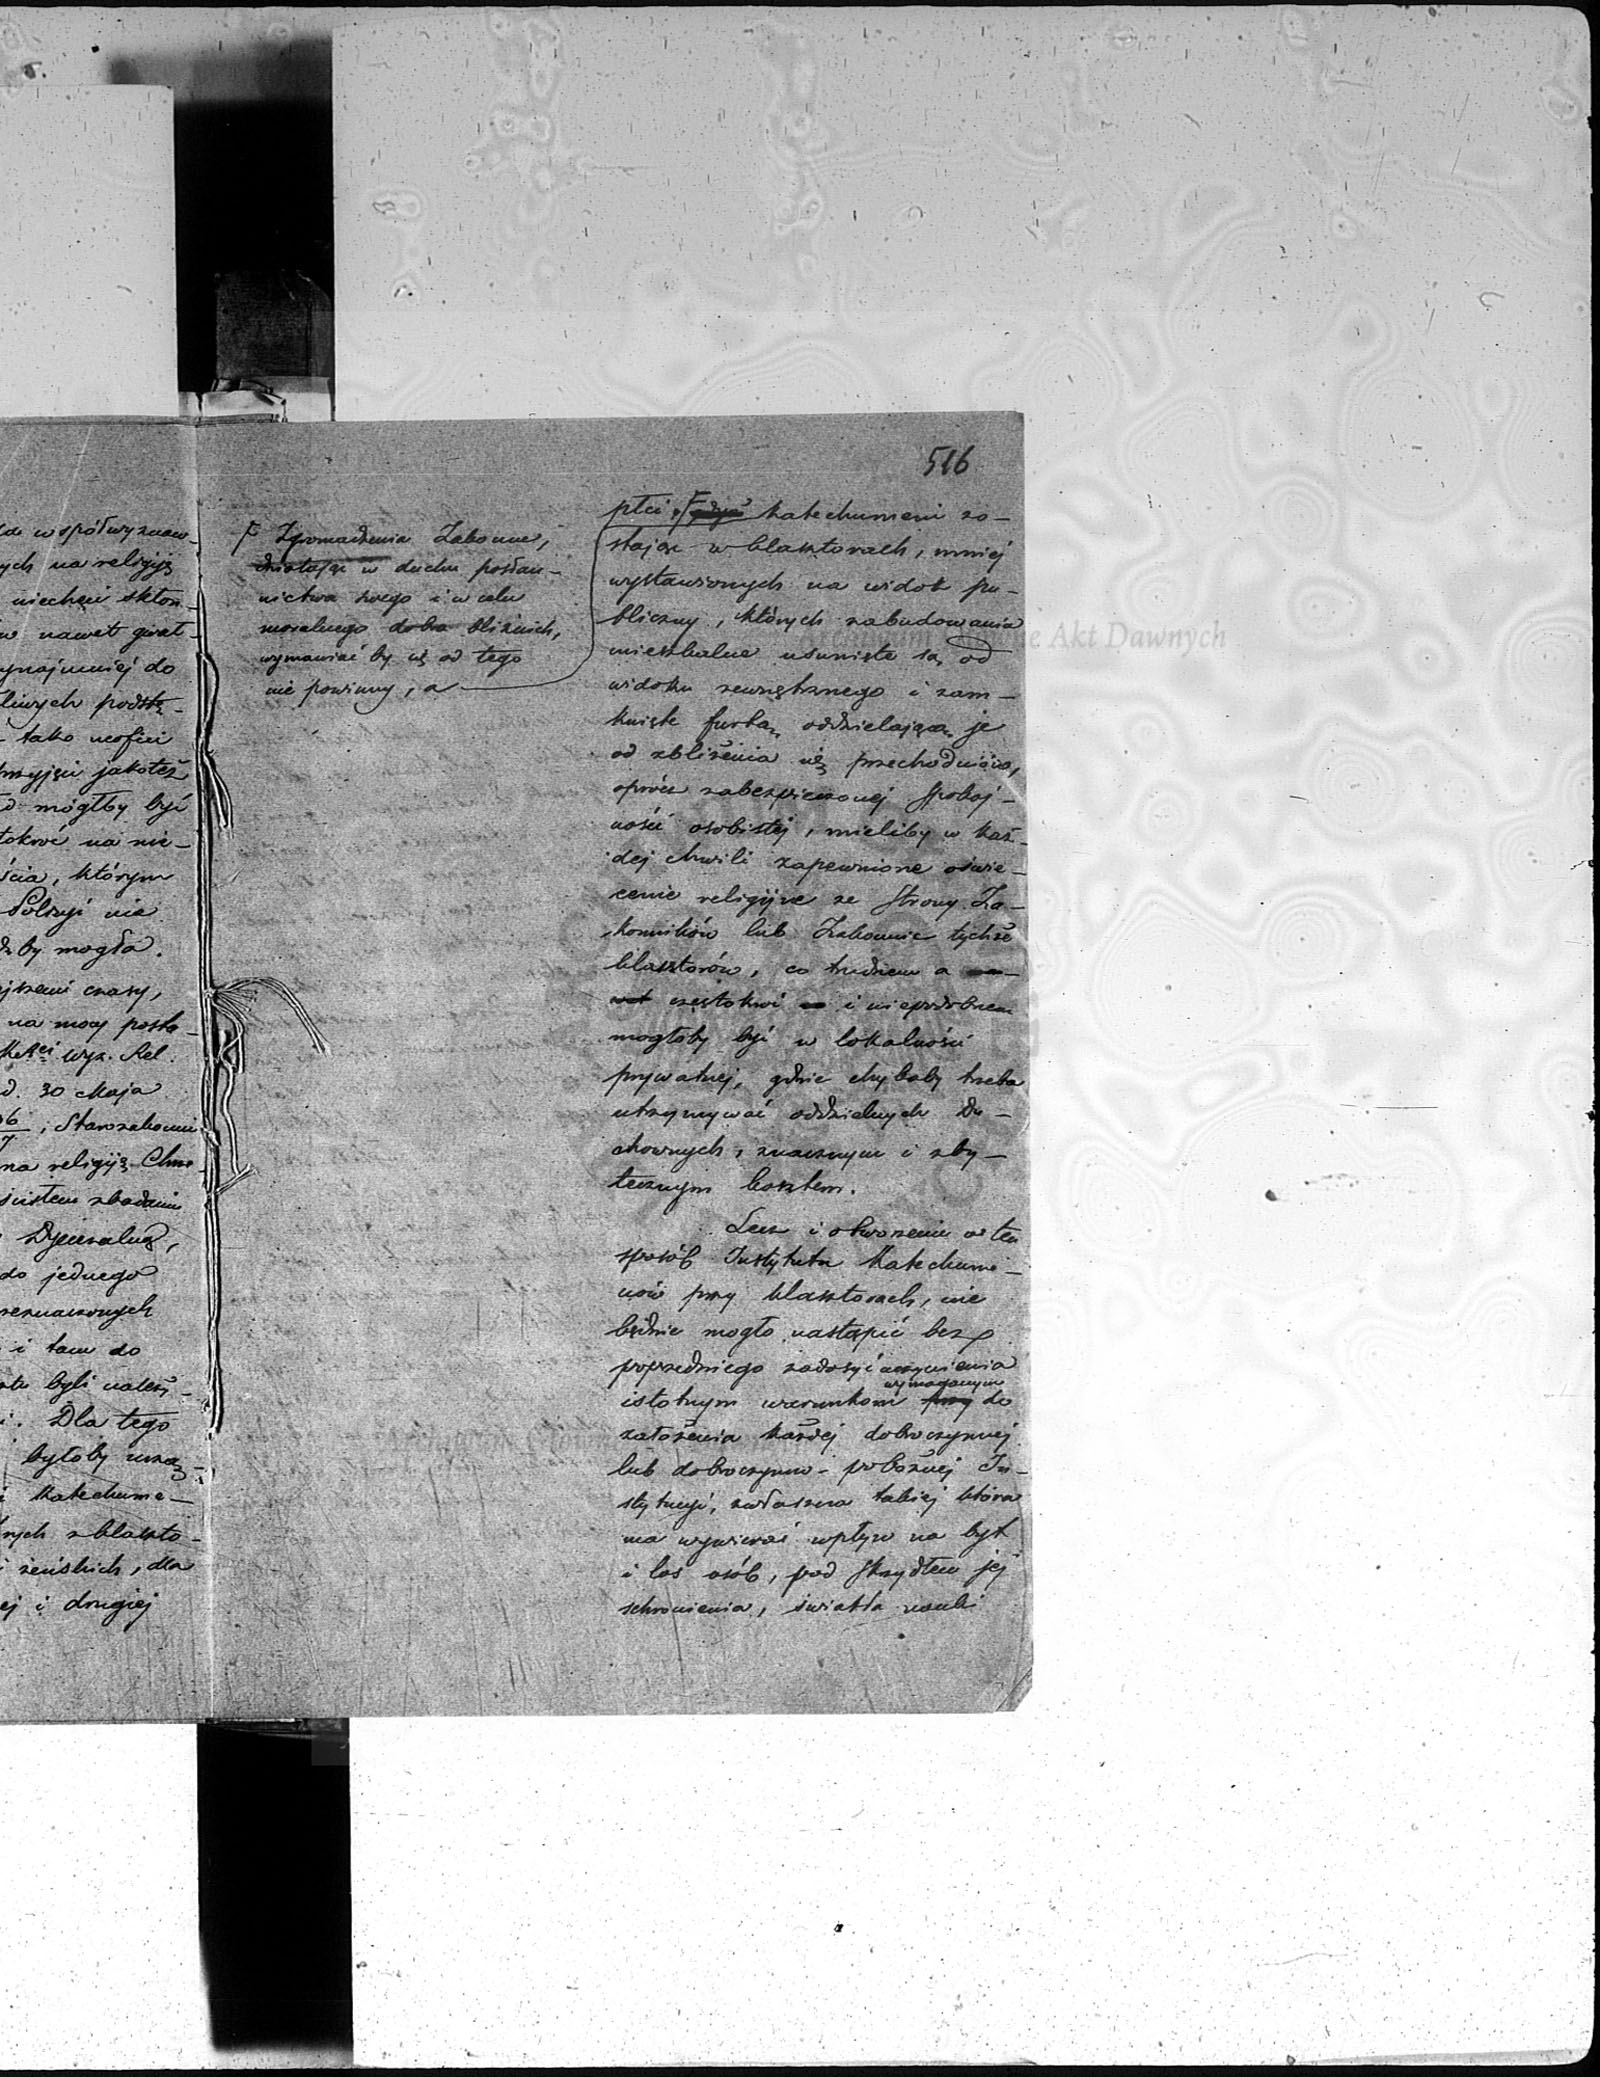 516
da współwyznaw-
ych na religiję
niechęci skłon-
nawet gwał-
ynajmniej do
liwych podstę-
tako neofici
przyjęci jakoteż
mógłby być
tokroć na nie-
ścia, którym
Policyi nie
by mogła.
jszemi czasy,
na mocy posta-
wyz. Rel.
d. 30 Maja
36/7, Starozakonni
na religiję Chrze-
ścisłem zbadaniu
Dyecezalną,
do jednego
przeznaczonych
i tam do
byli należy-
Dla tego
byłoby urzą-
Katechume-
nych z klaszto-
i żeńskich, dla
ej i drugiej
F Zgromadzenia Zakonne,
działając w duchu posłan-
nictwa swego i w celu
moralnego dobra bliźnich,
wymawiać by się od tego
nie powinny, a
płci. F gdyż Katechumeni zo-
stając w klasztorach, mniej
wystawionych na widok pu-
bliczny, których zabudowania
mieszkalne usunięte są od
widoku zewnętrznego i zam-
knięte furtą, oddzielającą je
od zbliżenia się przechodniów,
oprócz zabezpieczonej spokoj-
ności osobistej, mieliby w każ-
dej chwili zapewnione oświe-
cenie religijne ze strony Za-
konników lub Zakonnic tychże
klasztorów, co trudnem a
częstokroć i niepodobnem
mogłoby być w lokalności
prywatnej, gdzie chybaby trzeba
utrzymywać oddzielnych Du-
chownych, znacznym i zby-
tecznym kosztem.
Lecz i otworzenie w ten
sposób Instytutu Katechume-
nów przy klasztorach, nie
będzie mogło nastąpić bez
poprzedniego zadosyć uczynienia
wymaganym
istotnym warunkom przy do
założenia każdej dobroczynnej
lub dobroczynno-pobożnej In-
stytucyi, zwłaszcza takiej która
ma wywierać wpływ na byt
i los osób, pod skrzydłem jej
schronienia, światła nauki
Archiwum Główne Akt Dawnych